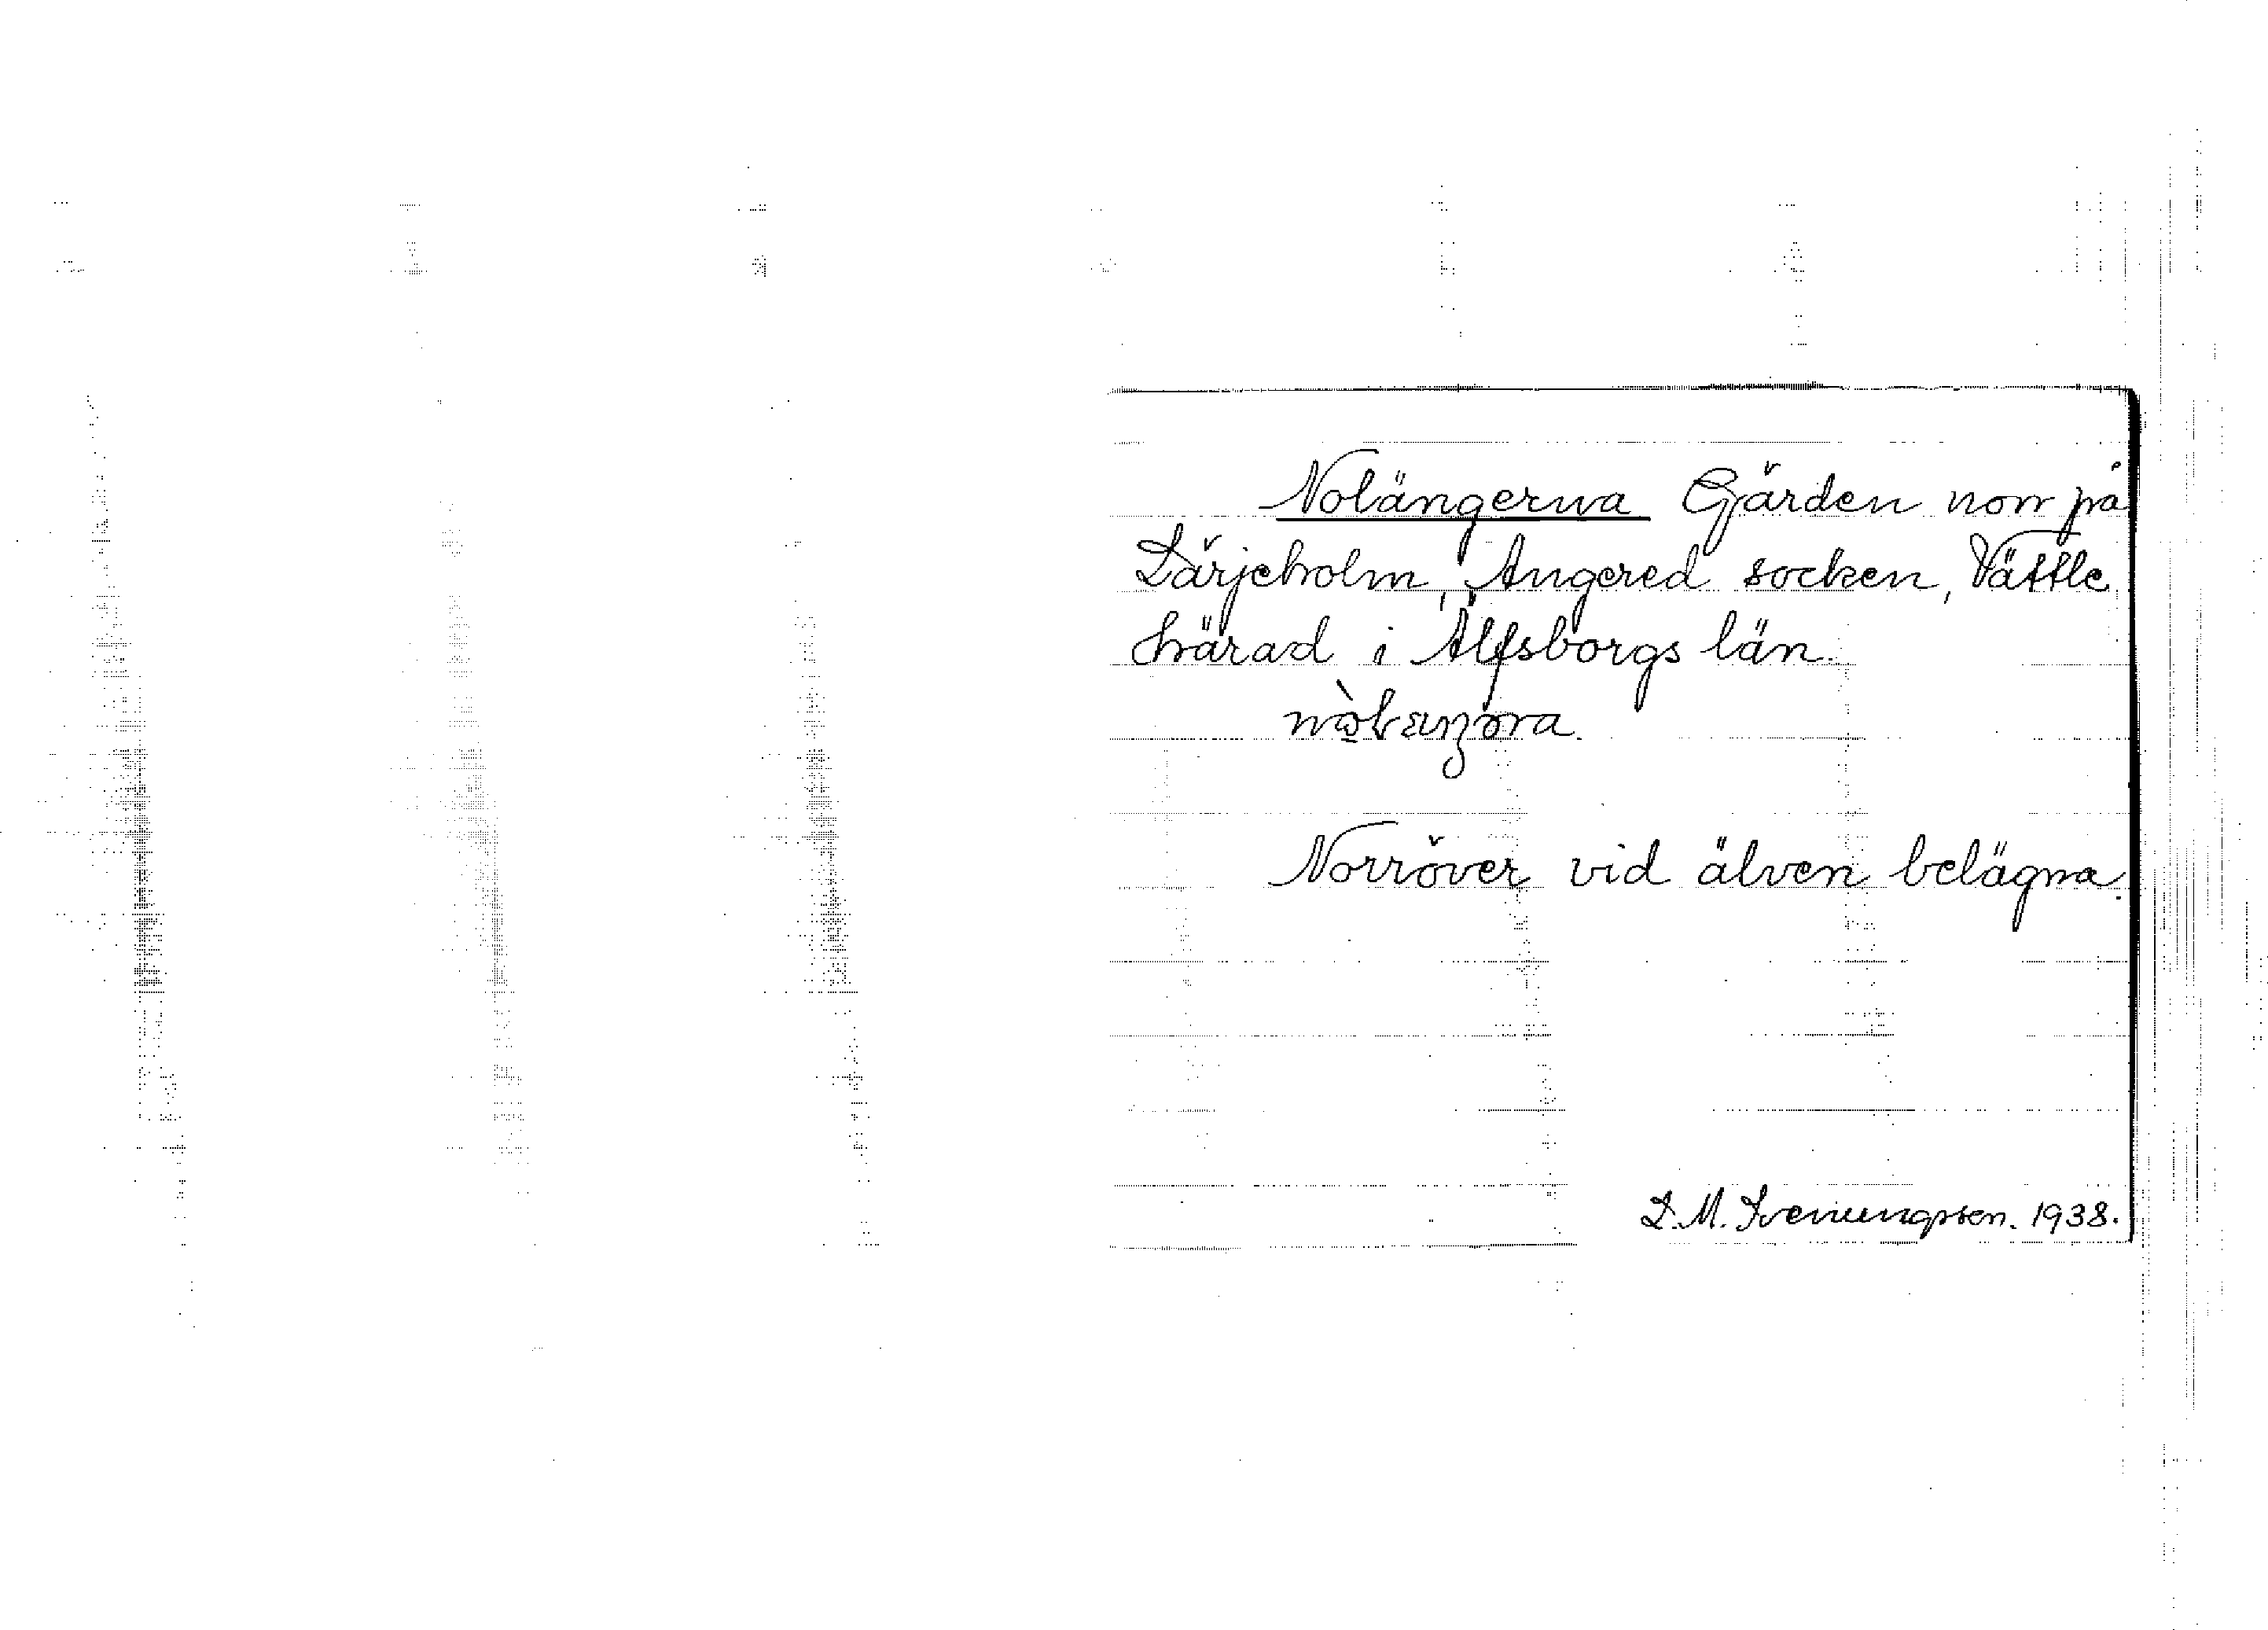 Nolängerna Gärden norr på
Lärjeholm, Angered socken, Vättle
härad i Älfsborgs län.
Norröver vid älven belägna.
L. M. Svenungsson. 1938.